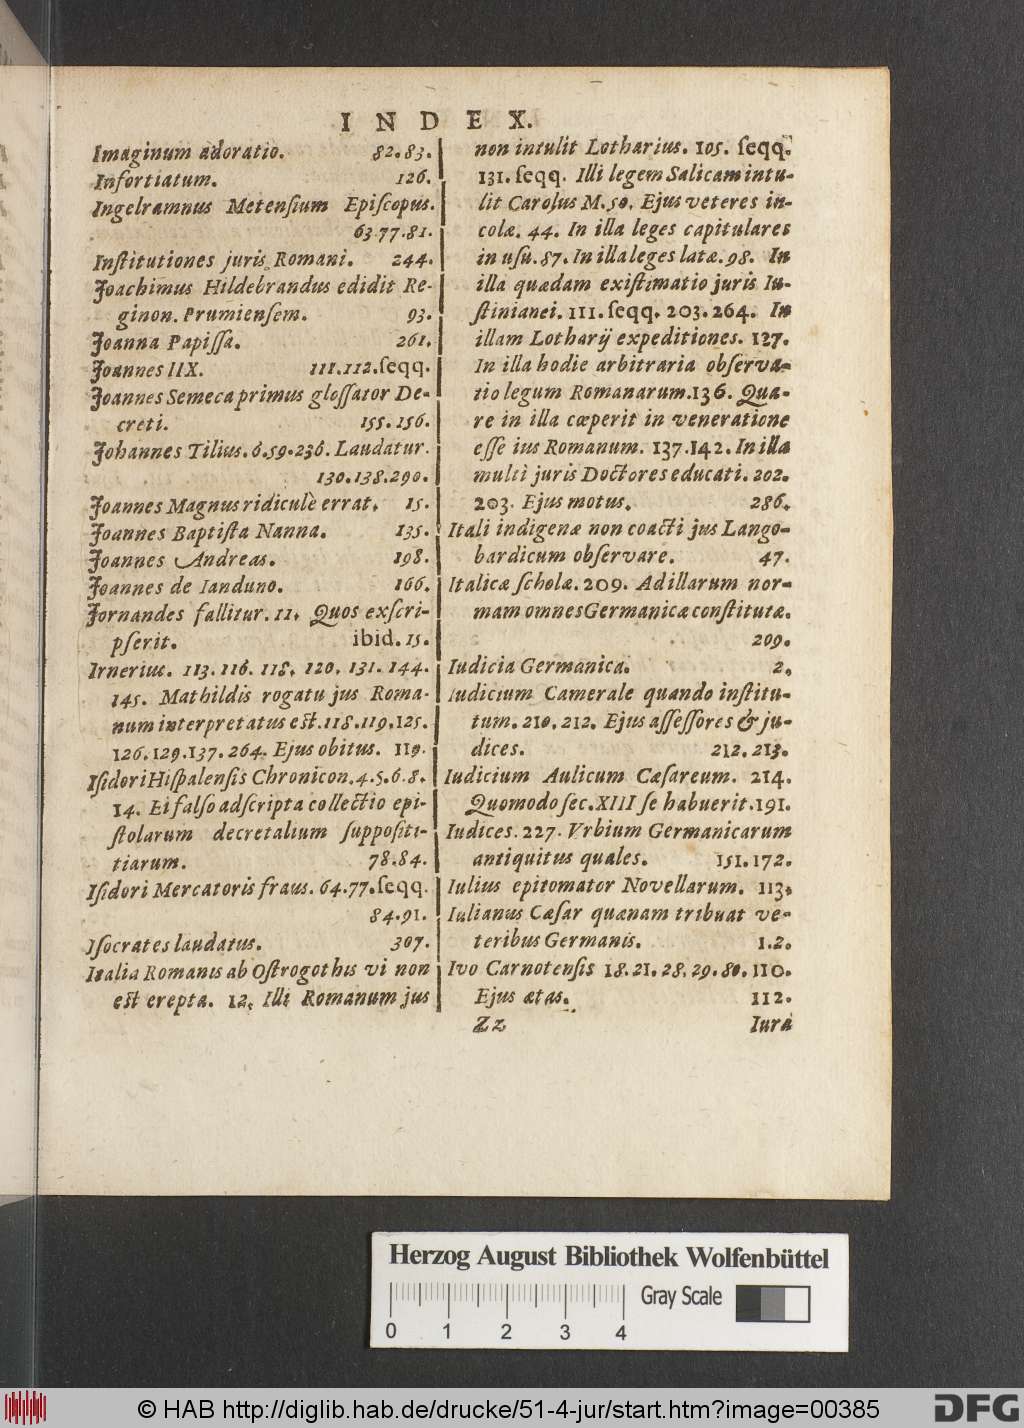 INDEX.
Imaginum adoratio. 82.83.
Infortiatum. 126.
Ingelramnus Metenſium Epiſcopus.
63.77.81.
Inſtitutiones juris Romani. 244.
Joachimus Hildebrandus edidit Re-
ginon. Prumienſem. 93.
Joanna Papiſſa. 261.
Joannes IIX. 111.112.ſeqq.
Joannes Semeca primus gloſſator De-
creti. 155.156.
Johannes Tilius. 6.59.236. Laudatur.
130.138.290.
Joannes Magnus ridiculè errat. 15.
Joannes Baptiſta Nanna. 135.
Joannes Andreas. 198.
Joannes de Ianduno. 166.
Jornandes fallitur. 11. Quos exſcri-
pſerit. ibid. 15.
Irnerius. 113. 116. 118. 120. 131. 144.
145. Mathildis rogatu jus Roma-
num interpretatus eſt. 118.119.125.
126.129.137.264. Ejus obitus. 119.
Iſidori Hiſpalenſis Chronicon. 4.5.6.8.
14. Ei falſo adſcripta collectio epi-
ſtolarum decretalium ſuppoſiti-
tiarum. 78.84.
Iſidori Mercatoris fraus. 64.77.ſeqq.
84.91.
Iſocrates laudatus. 307.
Italia Romanis ab Oſtrogothis vi non
eſt erepta. 12. Illi Romanum jus
non intulit Lotharius. 105. ſeqq.
131. ſeqq. Illi legem Salicam intu-
lit Carolus M. 50. Ejus veteres in-
colæ. 44. In illa leges capitulares
in uſu. 87. In illa leges latæ. 98. In
illa quædam exiſtimatio juris Iu-
ſtinianei. 111. ſeqq. 203. 264. In
illam Lotharij expeditiones. 127.
In illa hodie arbitraria obſerva-
tio legum Romanarum. 136. Qua-
re in illa cœperit in veneratione
eſſe ius Romanum. 137.142. In illa
multi juris Doctores educati. 202.
203. Ejus motus. 286.
Itali indigenæ non coacti jus Lango-
bardicum obſervare. 47.
Italicæ ſcholæ. 209. Ad illarum nor-
mam omnes Germanicæ conſtitutæ.
209.
Iudicia Germanica. 2.
Iudicium Camerale quando inſtitu-
tum. 210. 212. Ejus aſſeſſores & ju-
dices. 212. 213.
Iudicium Aulicum Cæſareum. 214.
Quomodo ſec. XIII ſe habuerit. 191.
Iudices. 227. Vrbium Germanicarum
antiquitus quales. 151. 172.
Iulius epitomator Novellarum. 113.
Iulianus Cæſar quænam tribuat ve-
teribus Germanis. 1.2.
Ivo Carnotenſis 18.21.28.29.80.110.
Ejus ætas. 112.
Zz Iura
Herzog August Bibliothek Wolfenbüttel
Gray Scale
0 1 2 3 4
© HAB http://diglib.hab.de/drucke/51-4-jur/start.htm?image=00385
DFG